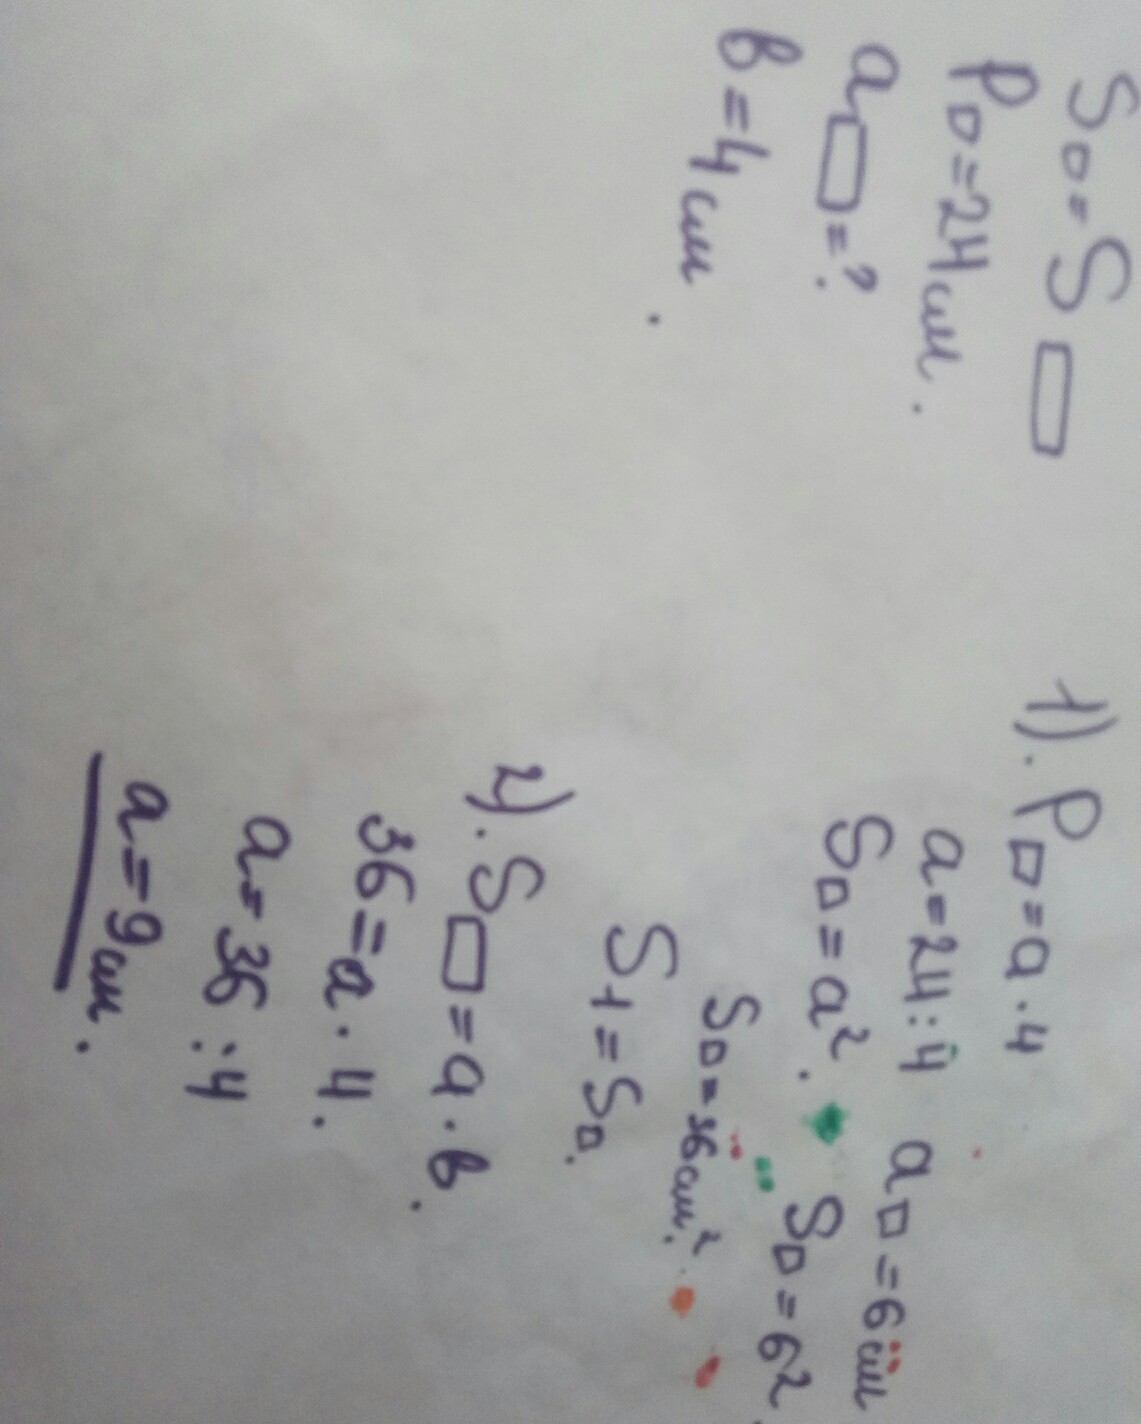 S□ = S▭
P□ = 24 см.
a▭ = ?
в = 4 см.
1). P□ = a · 4
a = 24 : 4 a□ = 6 см
S□ = a². S□ = 6²
S□ = 36 см².
S1 = S□.
2). S▭ = a · в.
36 = a · 4.
a = 36 : 4
a = 9 см.